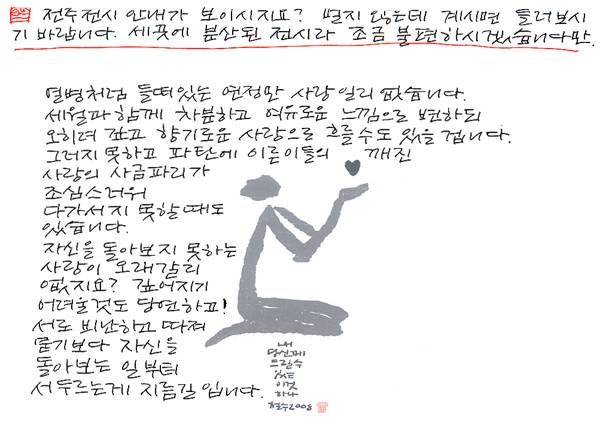 전주전시 안내가 보이시지요? 멀지 않은데 계시면 들러보시
기 바랍니다. 세곳에 분산된 전시라 조금 불편하시겠습니다만.
열병처럼 들떠있는 연정만 사랑일리 없습니다.
세월과 함께 차분하고 여유로운 느낌으로 변하되
오히려 깊고 향기로운 사랑으로 흐를 수도 있을 겁니다.
그러지 못하고 파탄에 이른이들의 깨진
사랑의 사금파리가
조심스러워
다가서지 못할때도
있습니다.
자신을 돌아보지 못하는
사랑이 오래갈리
없지요? 깊어지기
어려울것도 당연하고!
서로 비난하고 따져
묻기보다 자신을
돌아보는 일부터
서두르는게 지름길입니다.
내
당신께
드릴 수
있는
이것
하나
철수2008